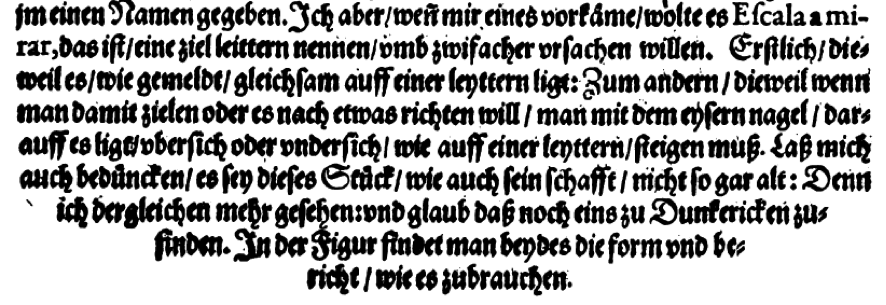 jm einen Namen gegeben. Jch aber/ weñ mir eines vorkäme/ wölte es Escala a mi-
rar, das ist/ eine ziel leittern nennen/ vmb zwifacher vrsachen willen. Erstlich/ die-
weil es/ wie gemeldt/ gleichsam auff einer leyttern ligt: Zum andern/ dieweil wenn
man damit zielen oder es nach etwas richten will/ man mit dem eysern nagel/ dar-
auff es ligt/ vbersich oder vndersich/ wie auff einer leyttern/ steigen muß. Laß mich
auch bedüncken/ es sey dieses Stück/ wie auch sein schafft/ nicht so gar alt: Denn
ich dergleichen mehr gesehen: vnd glaub daß noch eins zu Dunkericken zu-
finden. Jn der Figur findet man beydes die form vnd be-
richt/ wie es zubrauchen.